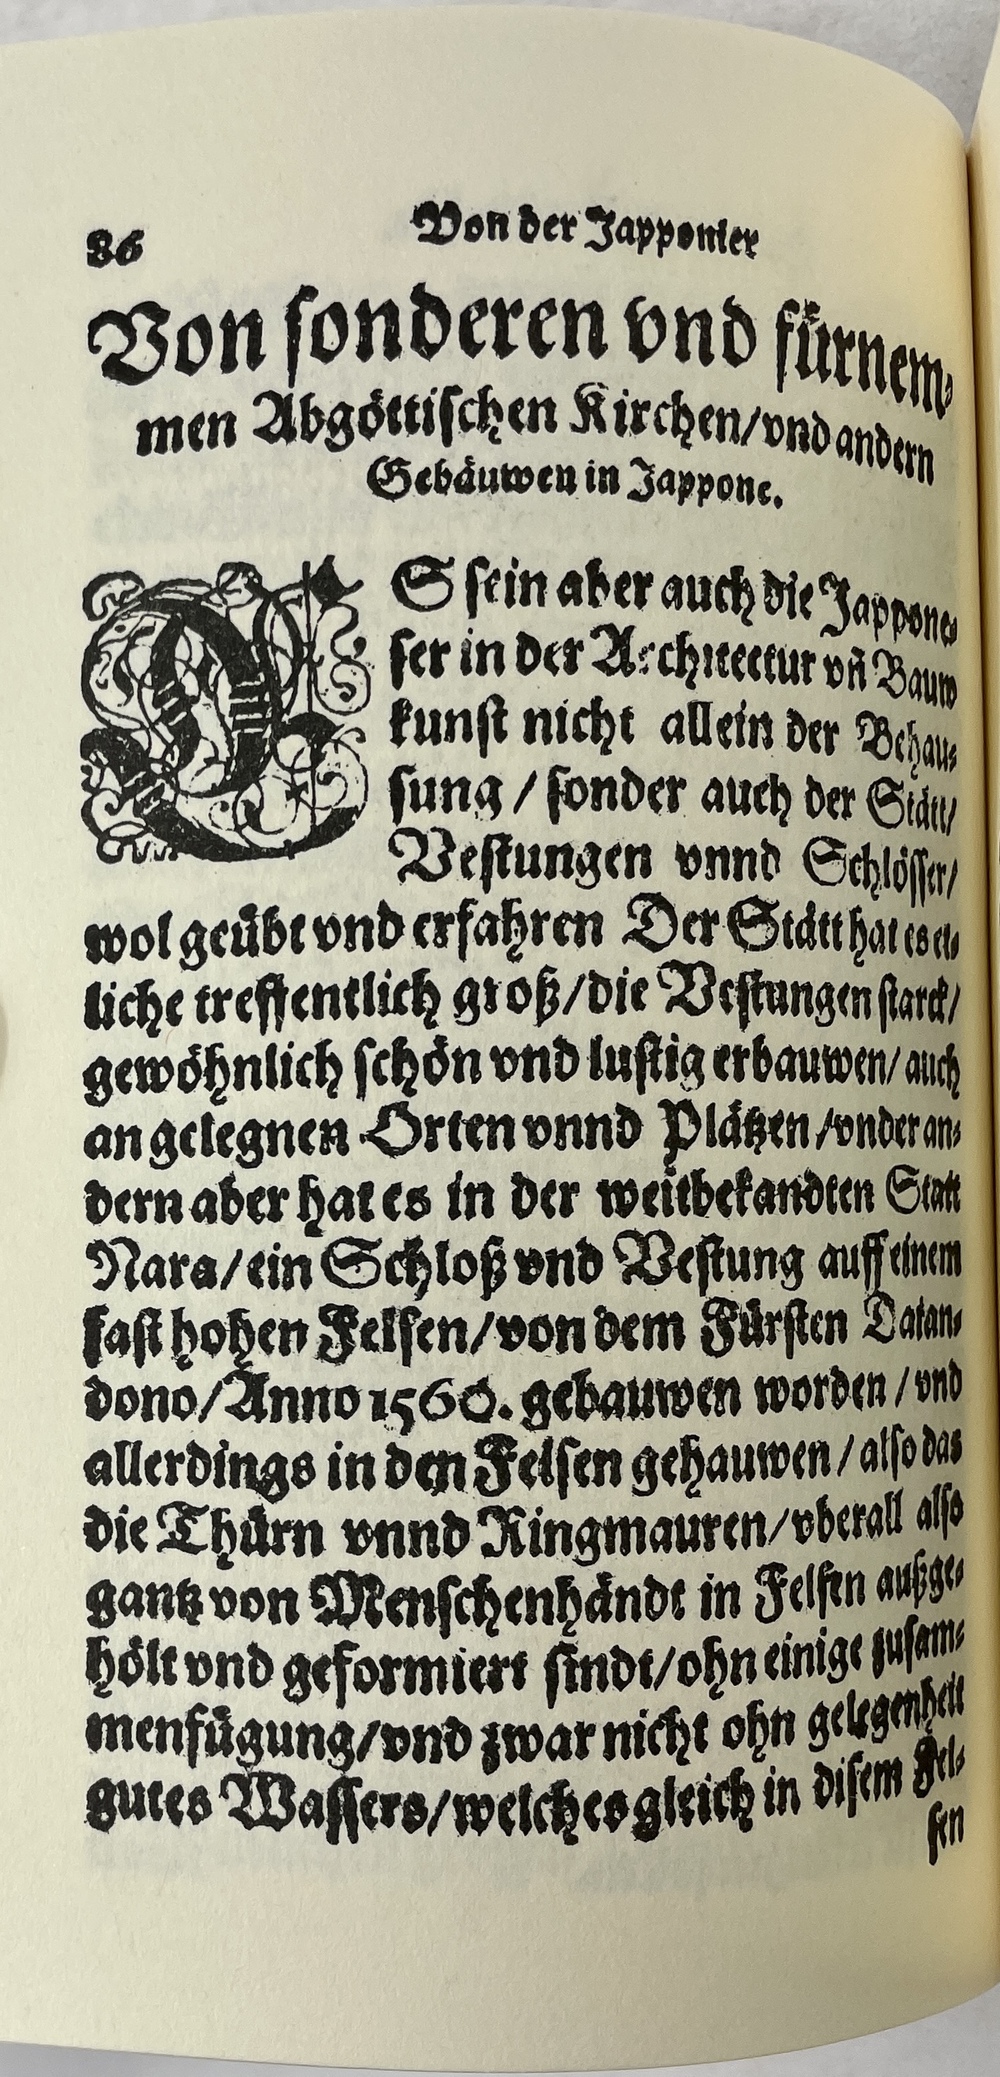 86
Von der Japponier
Von sonderen vnd fürnem⸗
men Abgöttischen Kirchen/vnd andern
Gebäuwen in Jappone.
ES sein aber auch die Jappone⸗
ser in der Architectur vñ Bauw
kunst nicht allein der Behau⸗
sung / sonder auch der Stätt/
Vestungen vnnd Schlösser/
wol geübt vnd erfahren Der Stätt hat es et⸗
liche treffentlich groß/die Vestungen starck/
gewöhnlich schön vnd lustig erbauwen/ auch
an gelegnen Orten vnnd Plätzen /vnder an⸗
dern aber hat es in der weitbekandten Statt
Nara/ein Schloß vnd Vestung auff einem
fast hohen Felsen/von dem Fürsten Datan⸗
dono/Anno 1560. gebauwen worden / vnd
allerdings in den Felsen gehauwen / also das
die Thürn vnnd Ringmauren/vberall also
gantz von Menschenhändt in Felsen außge⸗
hölt vnd geformiert sindt/ohn einige zusam⸗
menfügung/vnd zwar nicht ohn gelegenheit
gutes Wassers/welches gleich in disem Fel⸗
sen